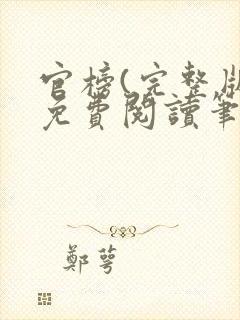 官榜(完整版
免費閱讀筆
鄭萼